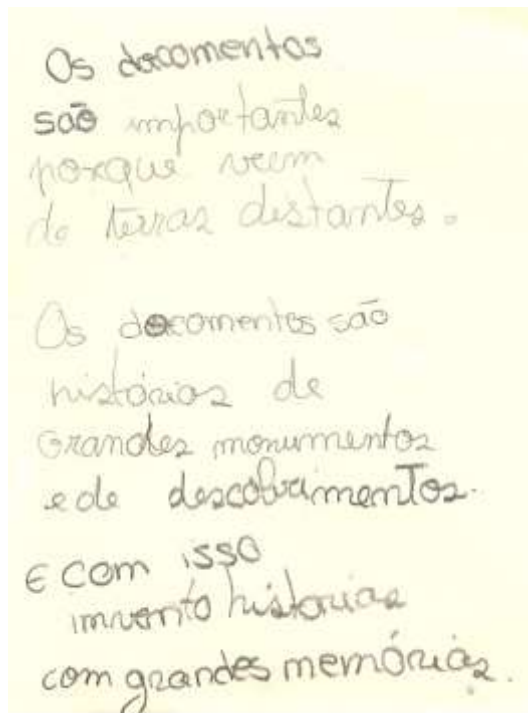 Os documentos
são importantes
porque veem
de terras distantes.
Os documentos são
histórias de
Grandes monumentos
e de descobrimentos.
E com isso
imvento historias
com grandes memórias.